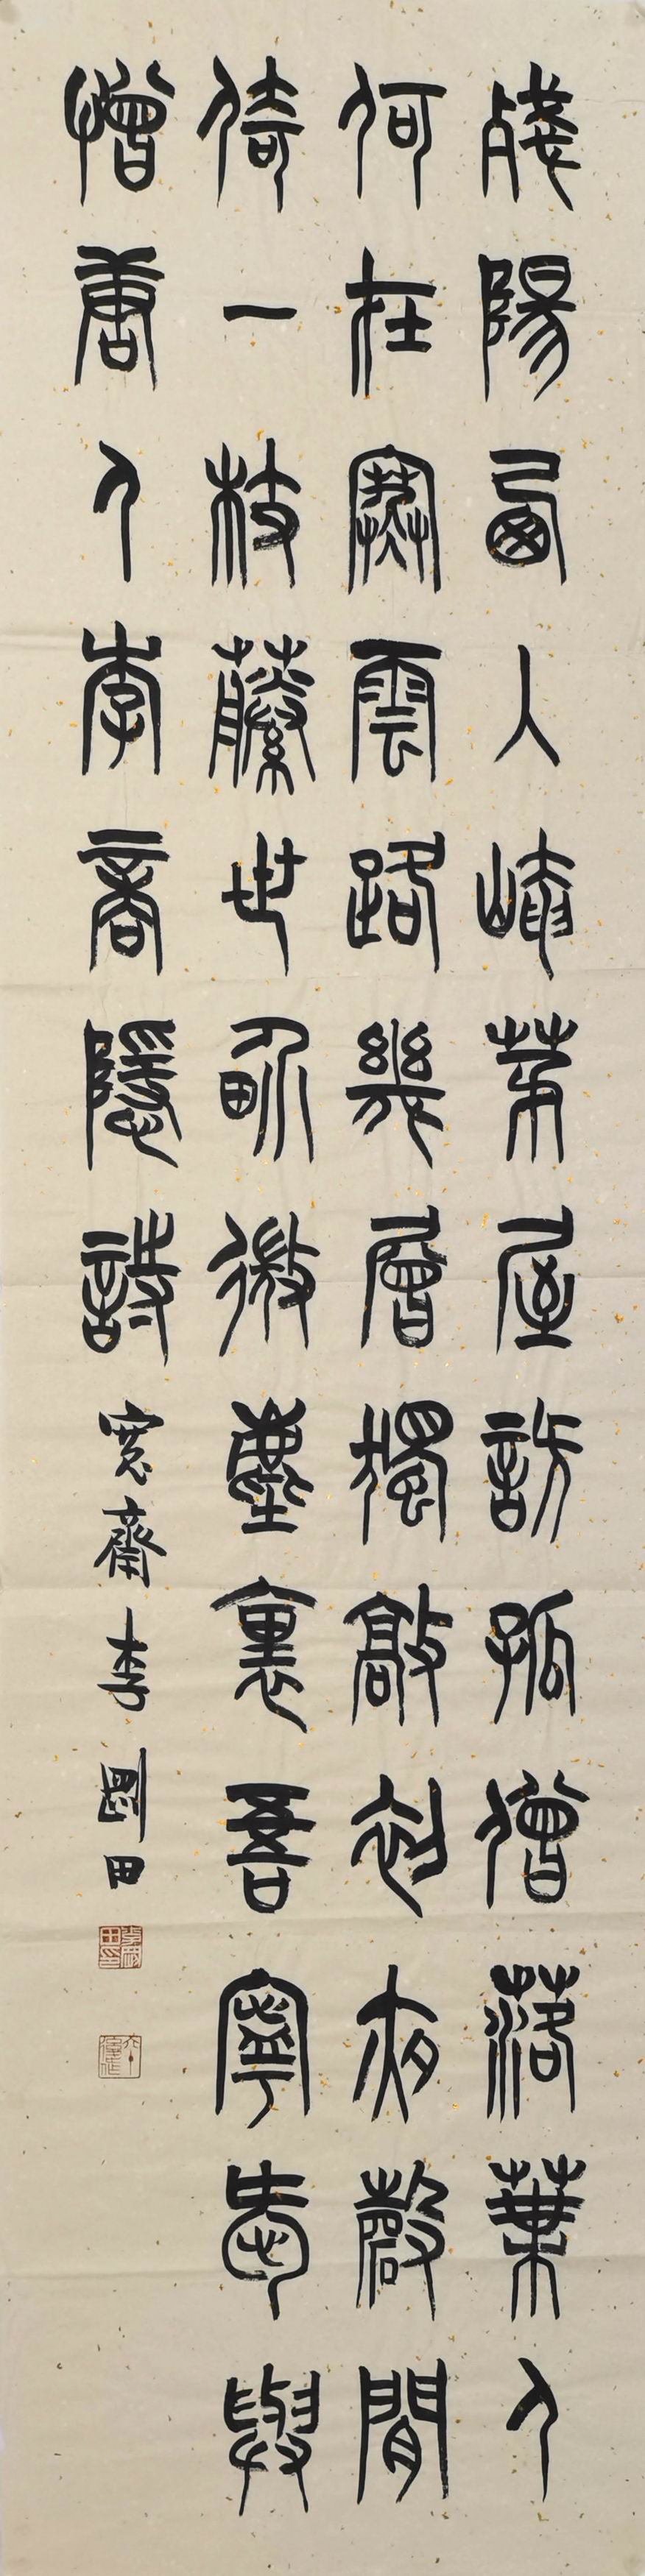 殘陽西入崦茅屋訪孤僧落葉人
何在寒雲路幾層獨敲初夜磬閒
倚一枝藤世界微塵裏吾寧愛與
憎唐人李商隱詩 寬齋李剛田
李剛田印